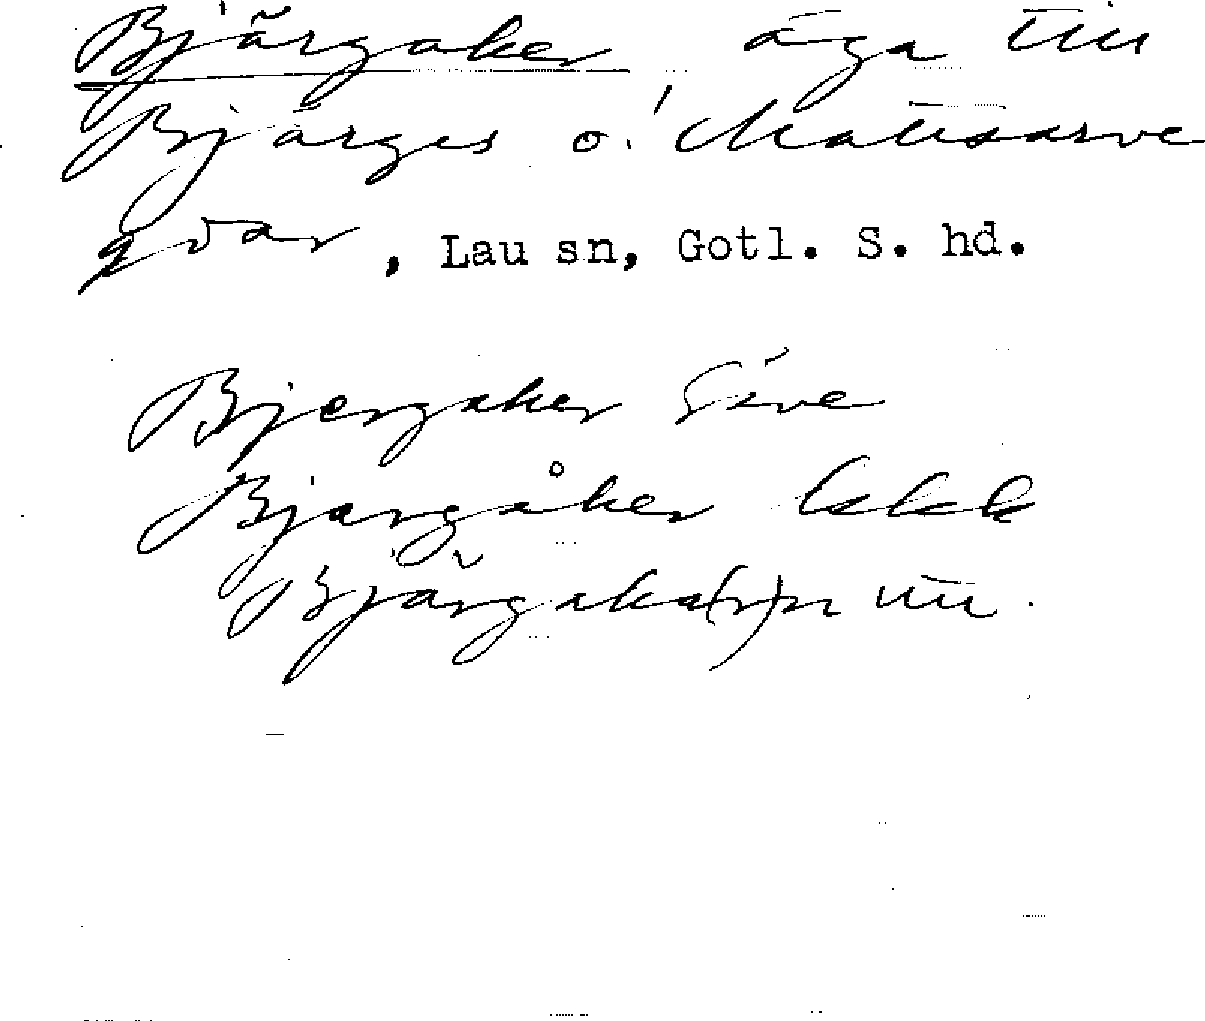 Bjärgaker, äga till
Bjärges o. Mattsarve
gdar, Lau sn, Gotl. S. hd.
Bjergaker Säve
Bjärgåker lskk
Bjärgaka(r)n